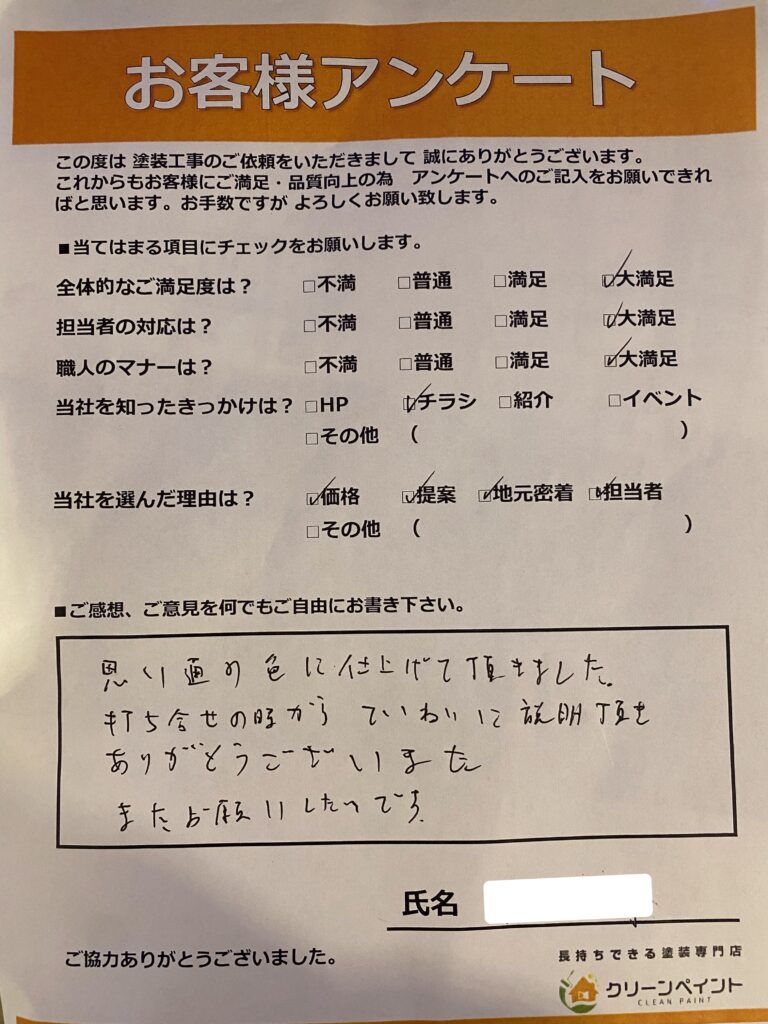 お客様アンケート
この度は 塗装工事のご依頼をいただきまして 誠にありがとうございます。
これからもお客様にご満足・品質向上の為　アンケートへのご記入をお願いできれ
ばと思います。お手数ですが よろしくお願い致します。
■当てはまる項目にチェックをお願いします。
全体的なご満足度は？ □不満 □普通 □満足 ☑大満足
担当者の対応は？ □不満 □普通 □満足 ☑大満足
職人のマナーは？ □不満 □普通 □満足 ☑大満足
当社を知ったきっかけは？ □HP ☑チラシ □紹介 □イベント
□その他 （ ）
当社を選んだ理由は？ ☑価格 ☑提案 ☑地元密着 ☑担当者
□その他 （ ）
■ご感想、ご意見を何でもご自由にお書き下さい。
思い通りの色に仕上げて頂きました。
打ち合せの時から ていねいに説明頂き
ありがとうございました
またお願いしたいです。
氏名
ご協力ありがとうございました。
長持ちできる塗装専門店
クリーンペイント
CLEAN PAINT